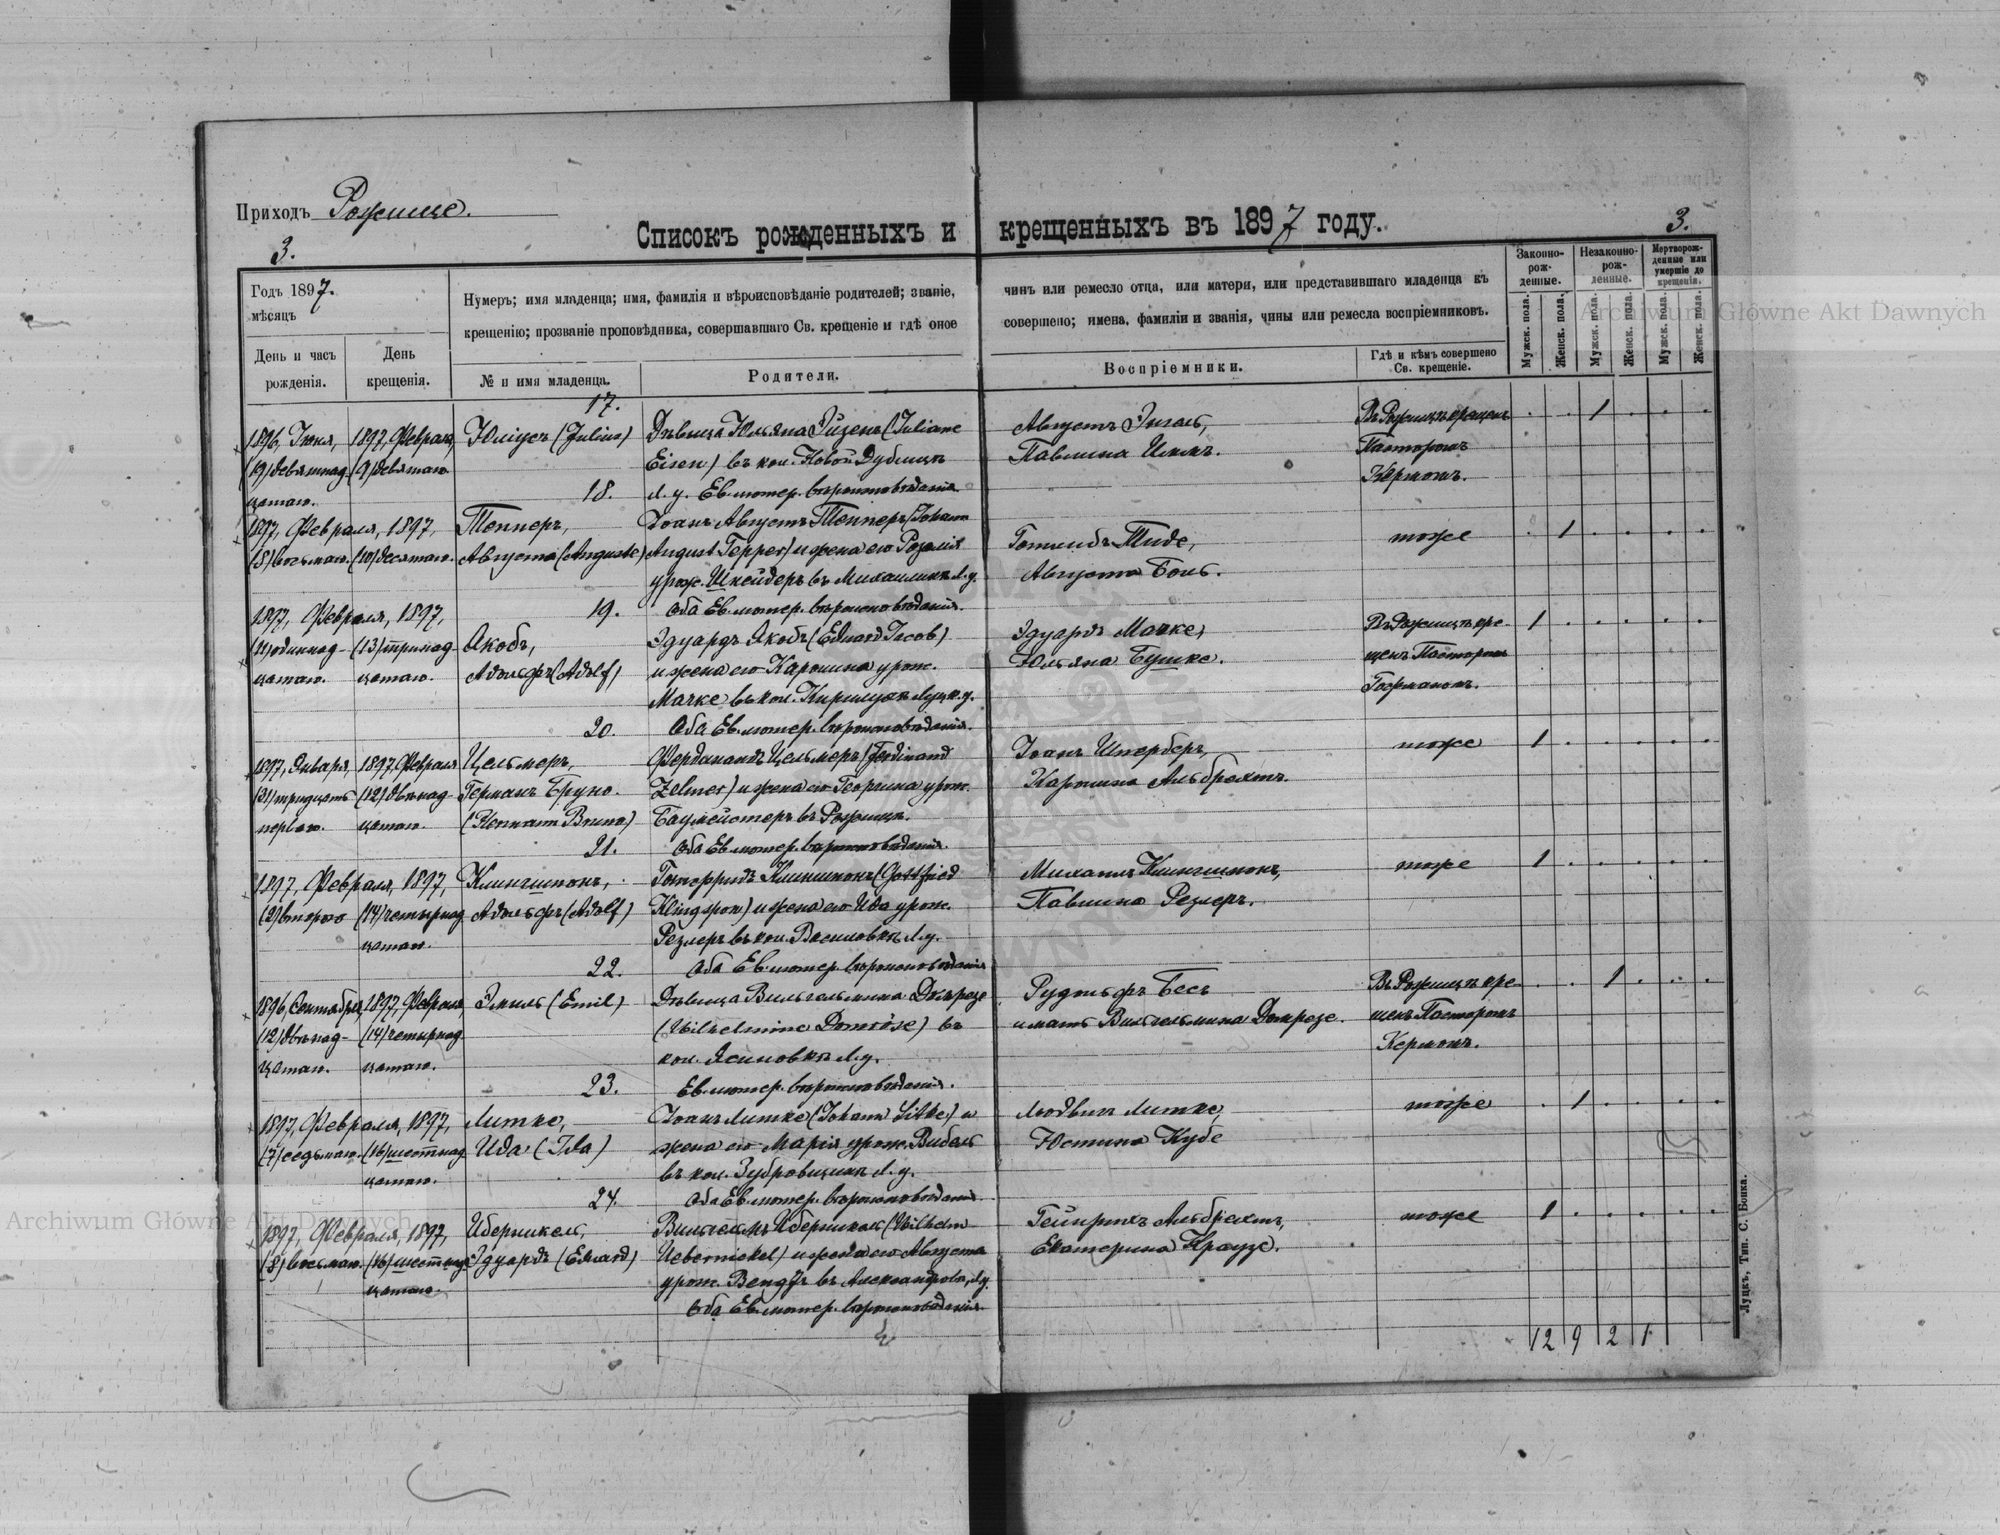 Приходъ Рожище.
Списокъ рожденныхъ и крещенныхъ въ 1897 году.
3.
3.
Годъ 1897.
мѣсяцъ
День и часъ рожденія.
День крещенія.
Нумеръ; имя младенца; имя, фамилія и вѣроисповѣданіе родителей; званіе, чинъ или ремесло отца, или матери, или представившаго младенца къ
крещенію; прозваніе проповѣдника, совершавшаго Св. крещеніе и гдѣ оное совершено; имена, фамиліи и званія, чины или ремесла воспріемниковъ.
№ и имя младенца.
Родители.
Воспріемники.
Гдѣ и кѣмъ совершено Св. крещеніе.
Законно-рож-денные.
Незаконно-рож-денные.
Мертворож-денные или умершіе до крещенія.
Мужск. пола.
Женск. пола.
Мужск. пола.
Женск. пола.
Мужск. пола.
Женск. пола.
17.
1896, Іюня, 1897, Февраля, Юліусъ (Julius) Дѣвица Юльяна Эйзенъ (Juliane Августъ Энгель, Въ Рожищѣ крещенъ 1
(19) девятнад- (9) девятаго Eisen) въ кол. Новой Дубищѣ Павлина Пасторомъ
цатаго. Л. у. Ев. лютер. вѣроисповѣданія. Кермомъ.
18.
1897, Февраля, 1897, Тепперъ, Іоанъ Августъ Тепперъ (Johann Готлибъ Тиде, тоже 1
(8) восьмаго. (10) десятаго. Августа (Auguste) August Tepper) и жена его Розалія Августа Боль.
урож. Шнейдеръ въ Михаилинѣ Л. у.
Оба Ев. лютер. вѣроисповѣданія.
19.
1897, Февраля, 1897, Якобъ, Эдуардъ Якобъ (Eduard Jacob) Эдуардъ Мачке, Въ Рожищѣ кре- 1
(11) одиннад- (13) тринад- Адольфъ (Adolf) и жена его Каролина урож. Юльяна Бушке. щенъ Пасторомъ
цатаго. цатаго. Мачке въ кол. Луцк. у.
Оба Ев. лютер. вѣроисповѣданія.
20.
1897, Января, 1897 Февраля Цельмеръ, Фердинандъ Цельмеръ (Ferdinand Іоанъ Шперберъ, тоже 1
(31) тридцать (12) двѣнад- Германъ Бруно. Zelmer) и жена его Георгина урож. Каролина Альбрехтъ.
перваго. цатаго. (Hermann Bruno) Баумейстеръ въ Рожищѣ.
Оба Ев. лютер. вѣроисповѣданія.
21.
1897, Февраля, 1897, Клингшпонъ, Готфридъ Клингшпонъ (Gottfried Михаилъ Клингшпонъ, тоже 1
(2) втораго (14) четырнад Адольфъ (Adolf) Klingspon) и жена его Ида урож. Павлина Резлеръ.
цатаго. Резлеръ въ кол. Василовкѣ Л. у.
Оба Ев. лютер. вѣроисповѣданія
22.
1896, Сентября, 1897, Февраля, Эмиль (Emil) Дѣвица Вильгельмина Домрезе Рудольфъ Бесъ Въ Рожищѣ кре- 1
(12) двѣнад- (14) четырнад (Wilhelmine Domröse) въ и мать Вильгельмина Домрезе. щенъ Пасторомъ
цатаго. цатаго. кол. Ясиновкѣ Л. у. Кермомъ.
Ев. лютер. вѣроисповѣданія.
23.
1897, Февраля, 1897, Литке, Іоанъ Литке (Johann Litke) и Людвигъ Литке, тоже 1
(7) седьмаго. (16) шестнад Ида (Ida) жена его Марія урож. Вибель Юстина Кубе
цатаго. въ кол. Зубровщинѣ Л. у.
Оба Ев. лютер. вѣроисповѣданія
24.
1897, Февраля, 1897, Иберникель, Вильгельмъ Иберникель (Wilhelm Гейнрихъ Альбрехтъ, тоже 1
(8) восьмаго. (16) шестнад Эдуардъ (Eduard) Uebernickel) и жена его Августа Екатерина Краузе.
цатаго. урож. Вендтъ въ Александров. Л. у.
Оба Ев. лютер. вѣроисповѣданія.
12 9 2 1
Луцкъ, Тип. С. Бонка.
Archiwum Główne Akt Dawnych
Archiwum Główne Akt Dawnych